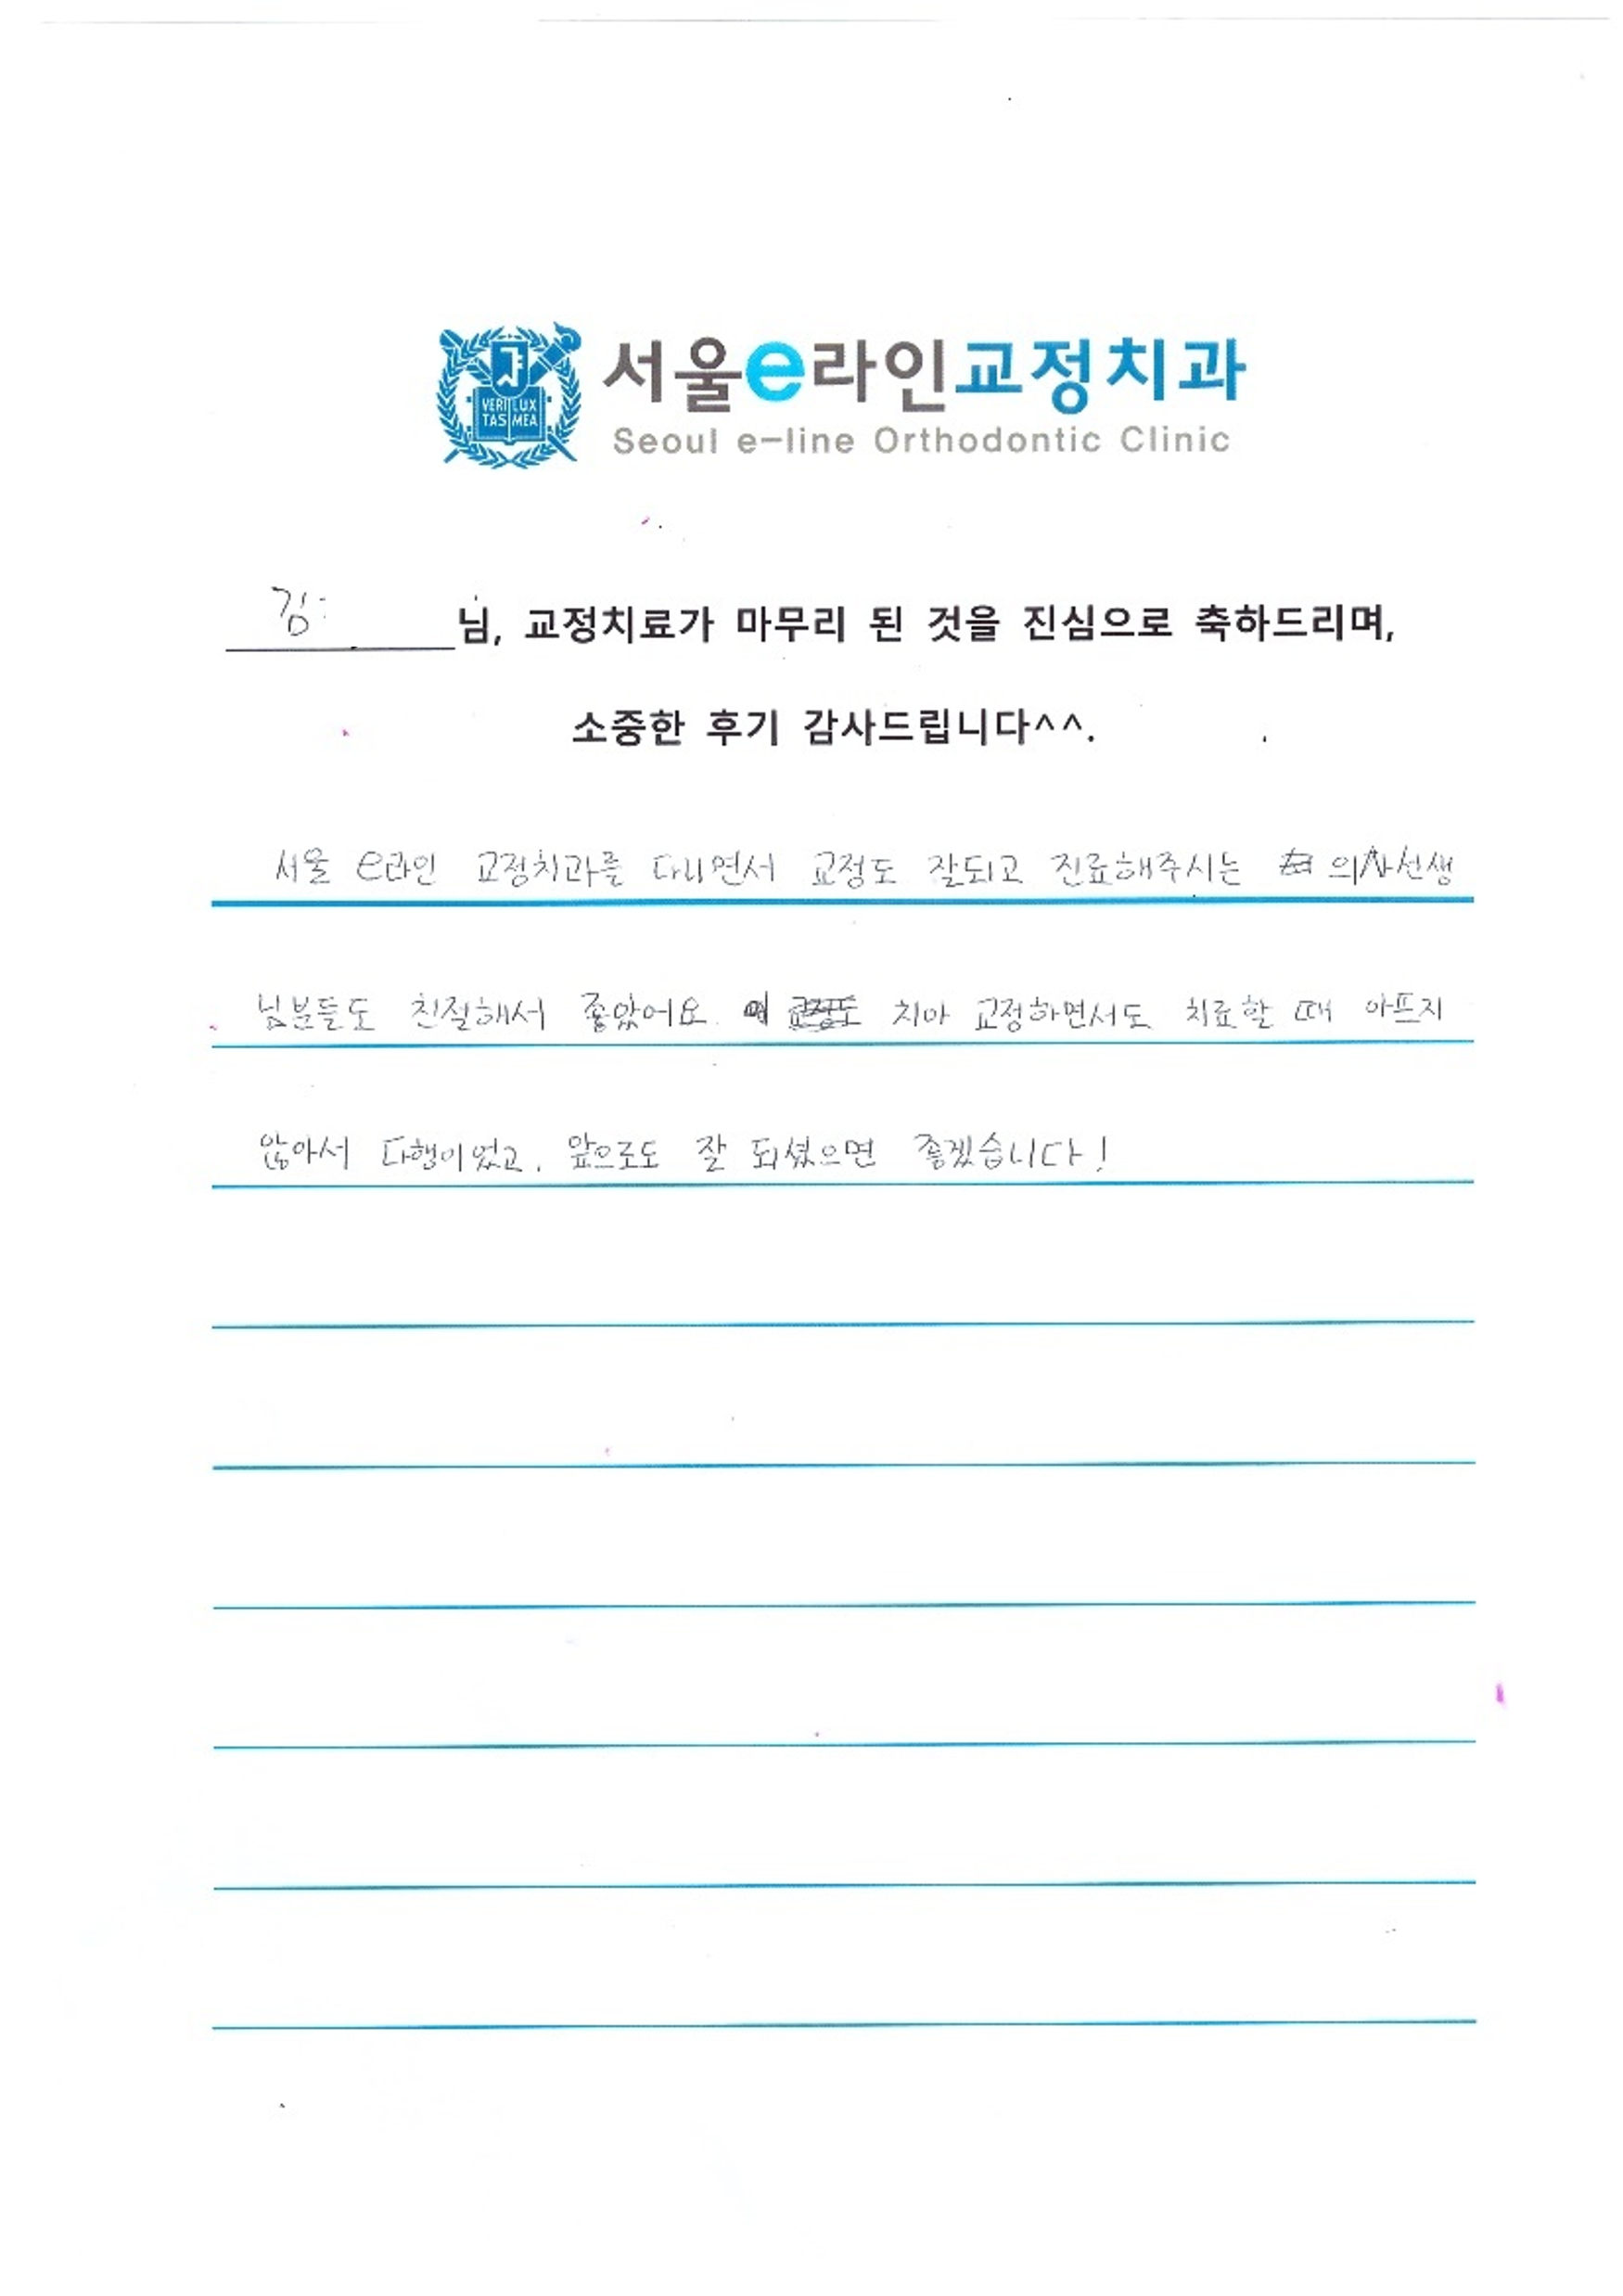 VERI LUX
TAS MEA
서울e라인교정치과
Seoul e-line Orthodontic Clinic
김 님, 교정치료가 마무리 된 것을 진심으로 축하드리며,
소중한 후기 감사드립니다^^.
서울 e라인 교정치과를 다니면서 교정도 잘되고 진료해주시는 의사선생
님분들도 친절해서 좋았어요. 치아 교정하면서도 치료할 때 아프지
않아서 다행이었고, 앞으로도 잘 되셨으면 좋겠습니다!